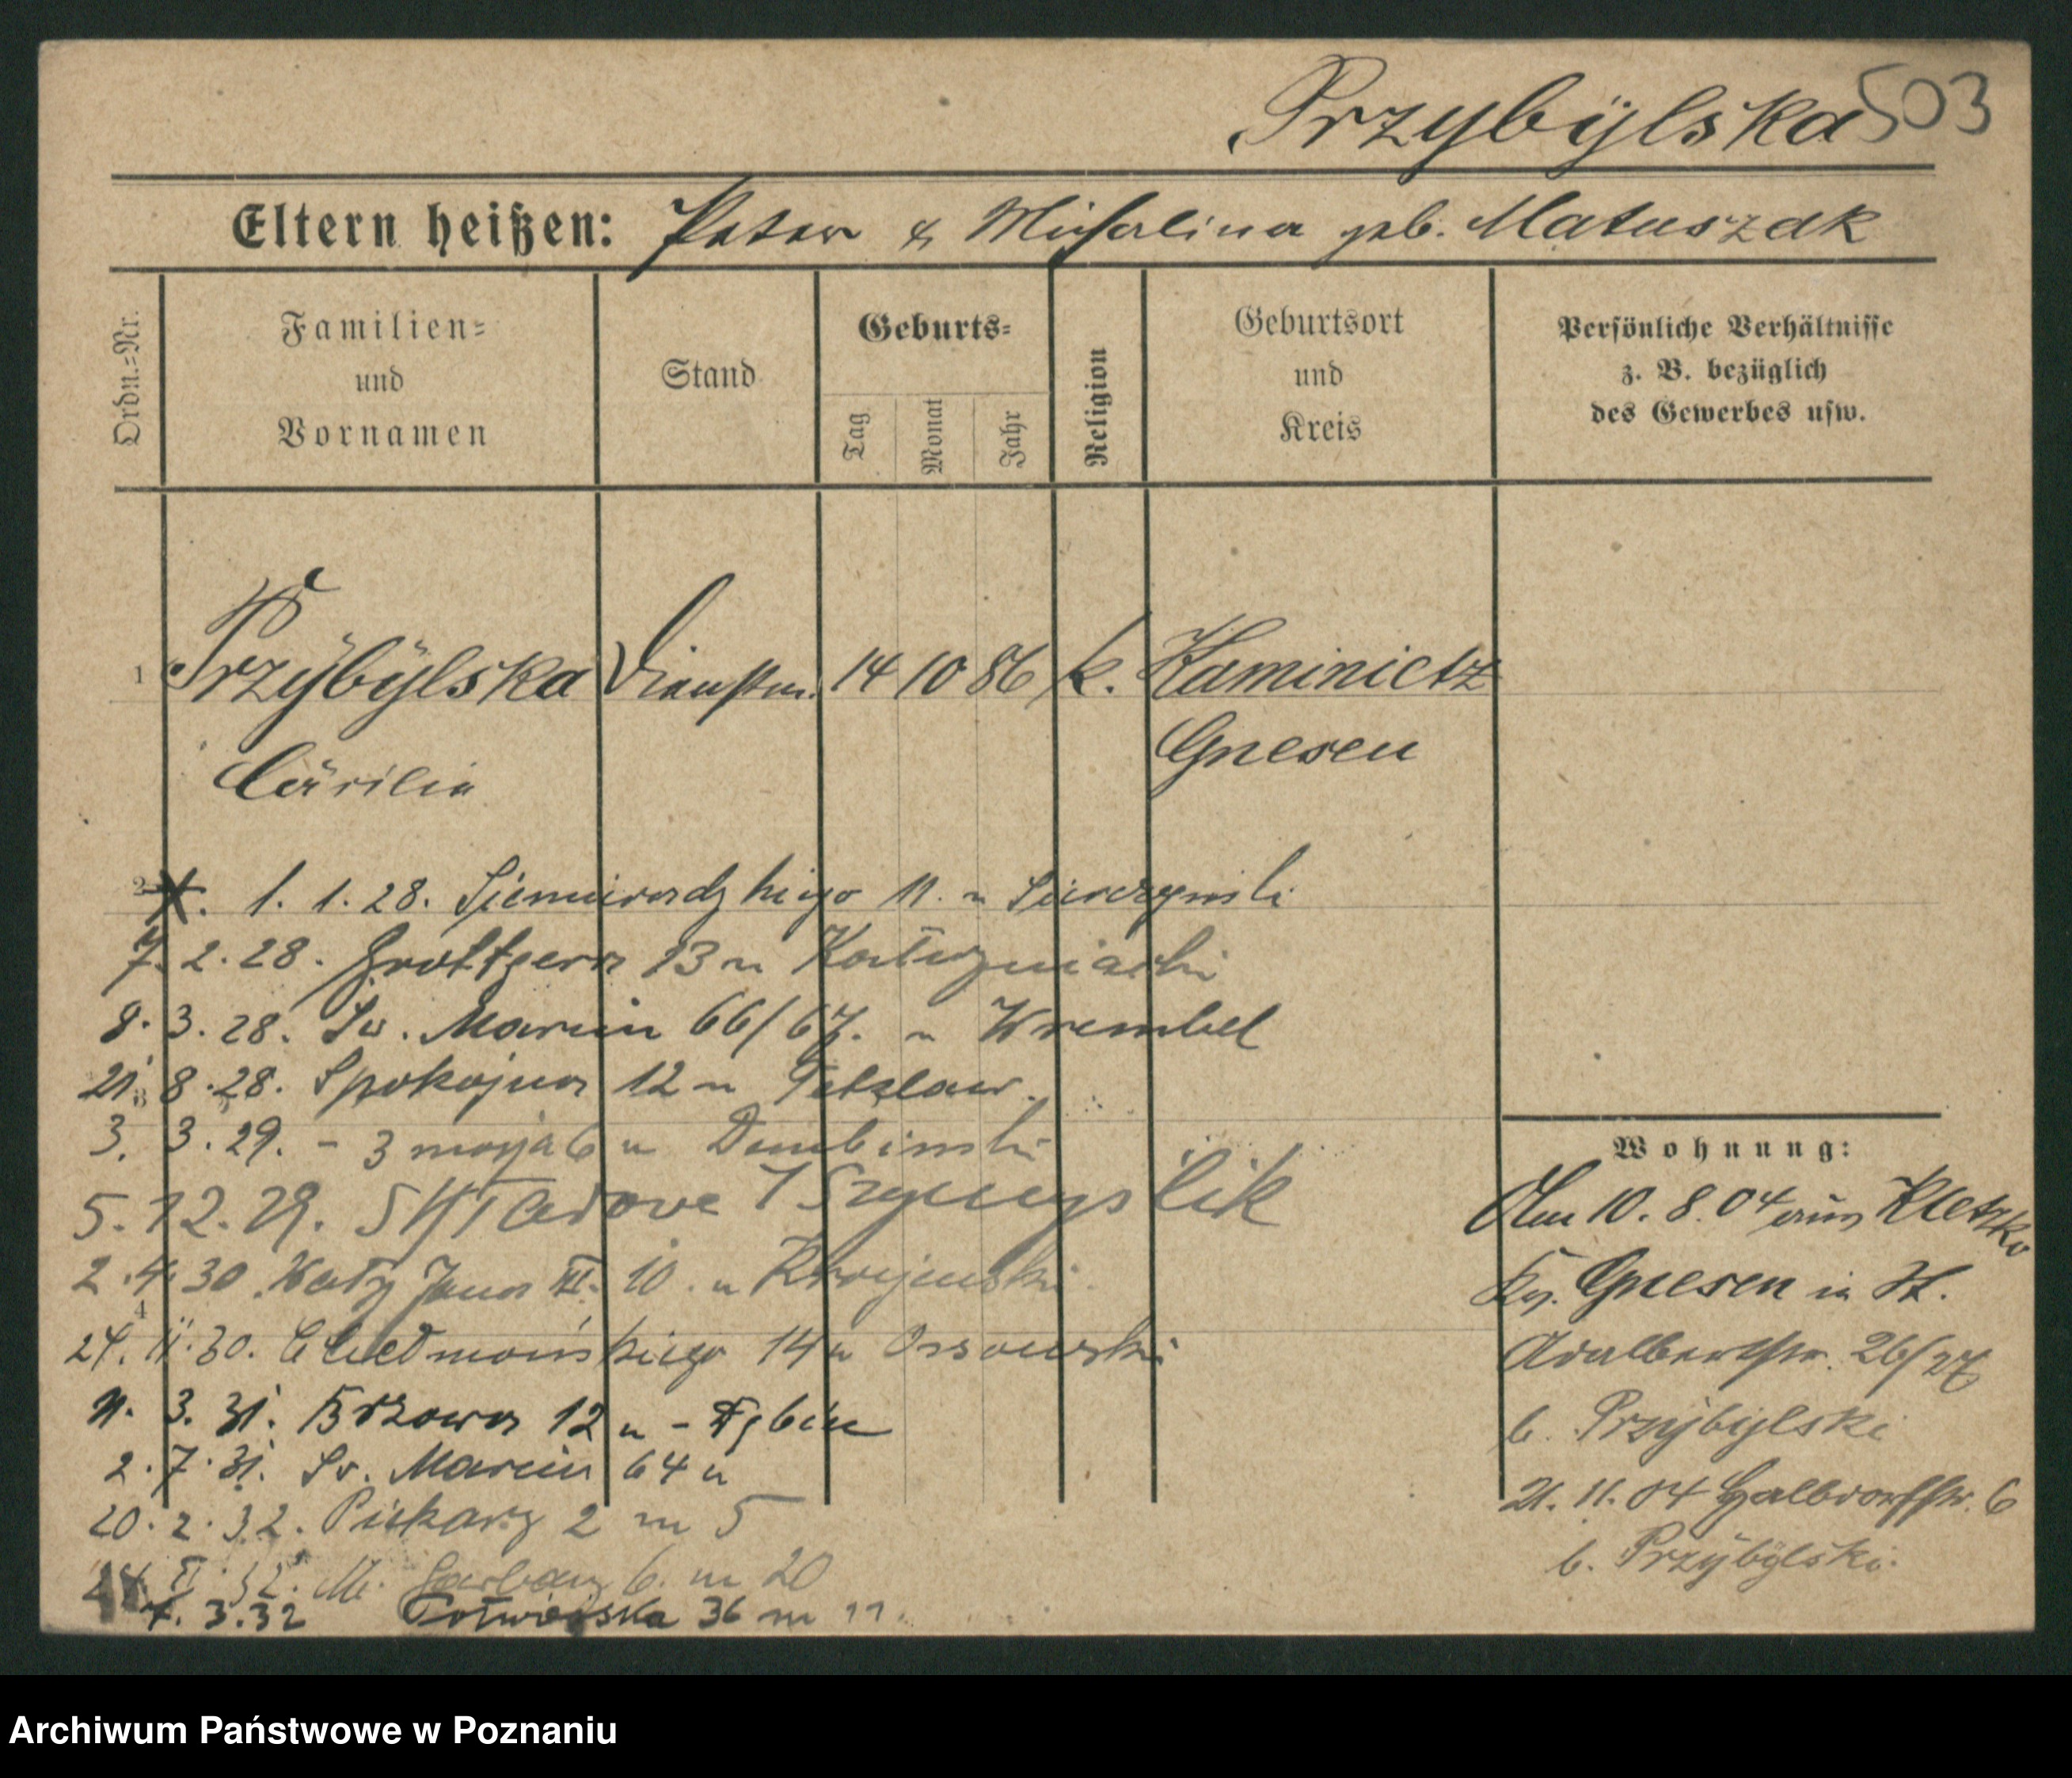 Przybÿlska 503
Eltern heißen: Peter & Michalina geb. Matuszak
Ordn.=Nr.
Familien=
und
Vornamen
Stand
Geburts=
Tag
Monat
Jahr
Religion
Geburtsort
und
Kreis
Persönliche Verhältnisse
z. B. bezüglich
des Gewerbes usw.
1 Przÿbÿlska Dienstm. 14 10 86 k. Kaminietz
Gnesen
Cäcilia
2
1. 1. 28. Siemiradzkiego 11. u
7. 2. 28. Grottgera 13 u
8. 3. 28. Św. Marcin 66/67. u Wrembel
21. 8. 28. Spokojna 12 u
3. 3. 29. - 3 maja 6 u Dembinski
5. 12. 29.
2. 4. 30. Jana III. 10. u
4
24. 11. 30. Chełmońskiego 14 u Ossowski
11. 3. 31. 12 u -
2. 7. 31. Św. Marcin 64 u
20. 2. 32. Piekary 2 m 5
32. M. Garbary 6. m 20
7. 3. 32 Półwiejska 36 m 11.
Wohnung:
Am 10. 8. 04 aus Kletzko
Kr. Gnesen in St.
Adalbertstr. 26/27
b. Przÿbÿlski
21. 11. 04 Halbdorfstr. 6
b. Przÿbÿlski.
Archiwum Państwowe w Poznaniu